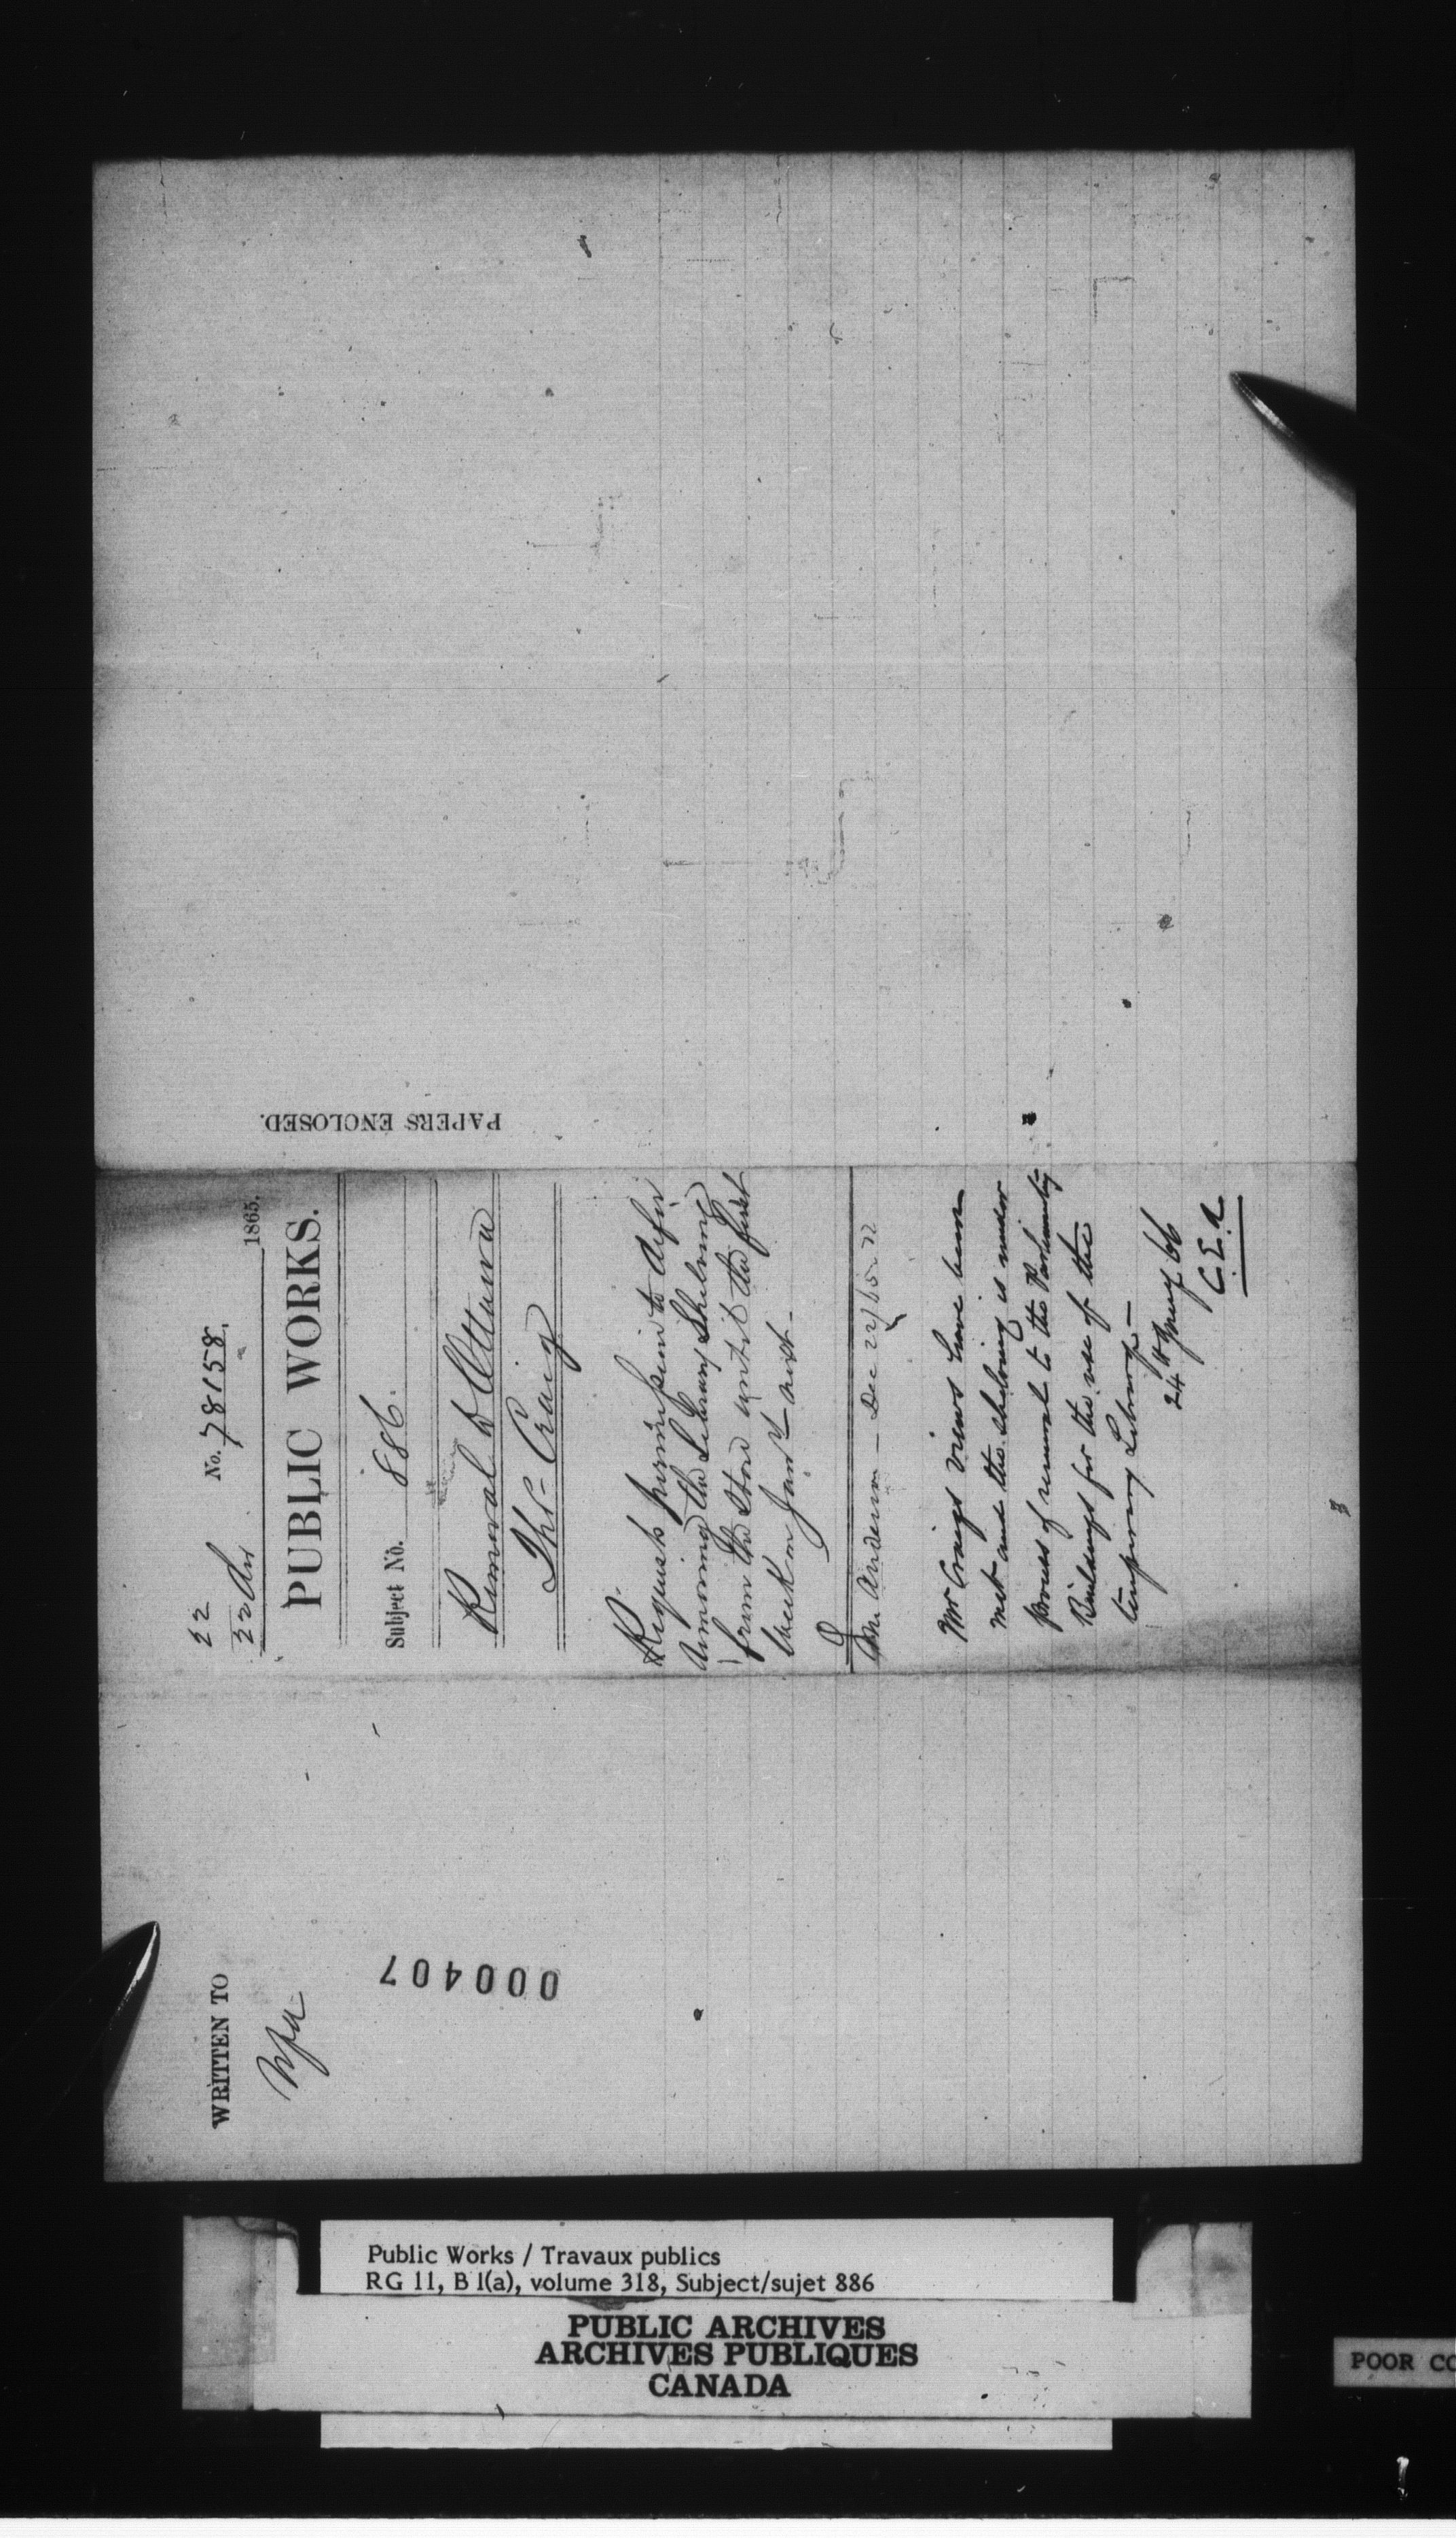 22
22 Dec
No. 78158.
1865.
PUBLIC WORKS.
Subject No. 886.
Removal to Ottawa
Thos Craig
Requests permission to defer
removing the Library Shelving
from the Store until the first
week in Jany next-
Mr Anderson - Dec 22/65
Mr Craigs views have been
met and the shelving is under
process of removal to the Parliamentary
Buildings for the use of the
temporary Library -
24th Jany 66
C.E.A
PAPERS ENCLOSED.
WRITTEN TO
000407
Public Works / Travaux publics
RG 11, B 1(a), volume 318, Subject/sujet 886
PUBLIC ARCHIVES
ARCHIVES PUBLIQUES
CANADA
POOR CO